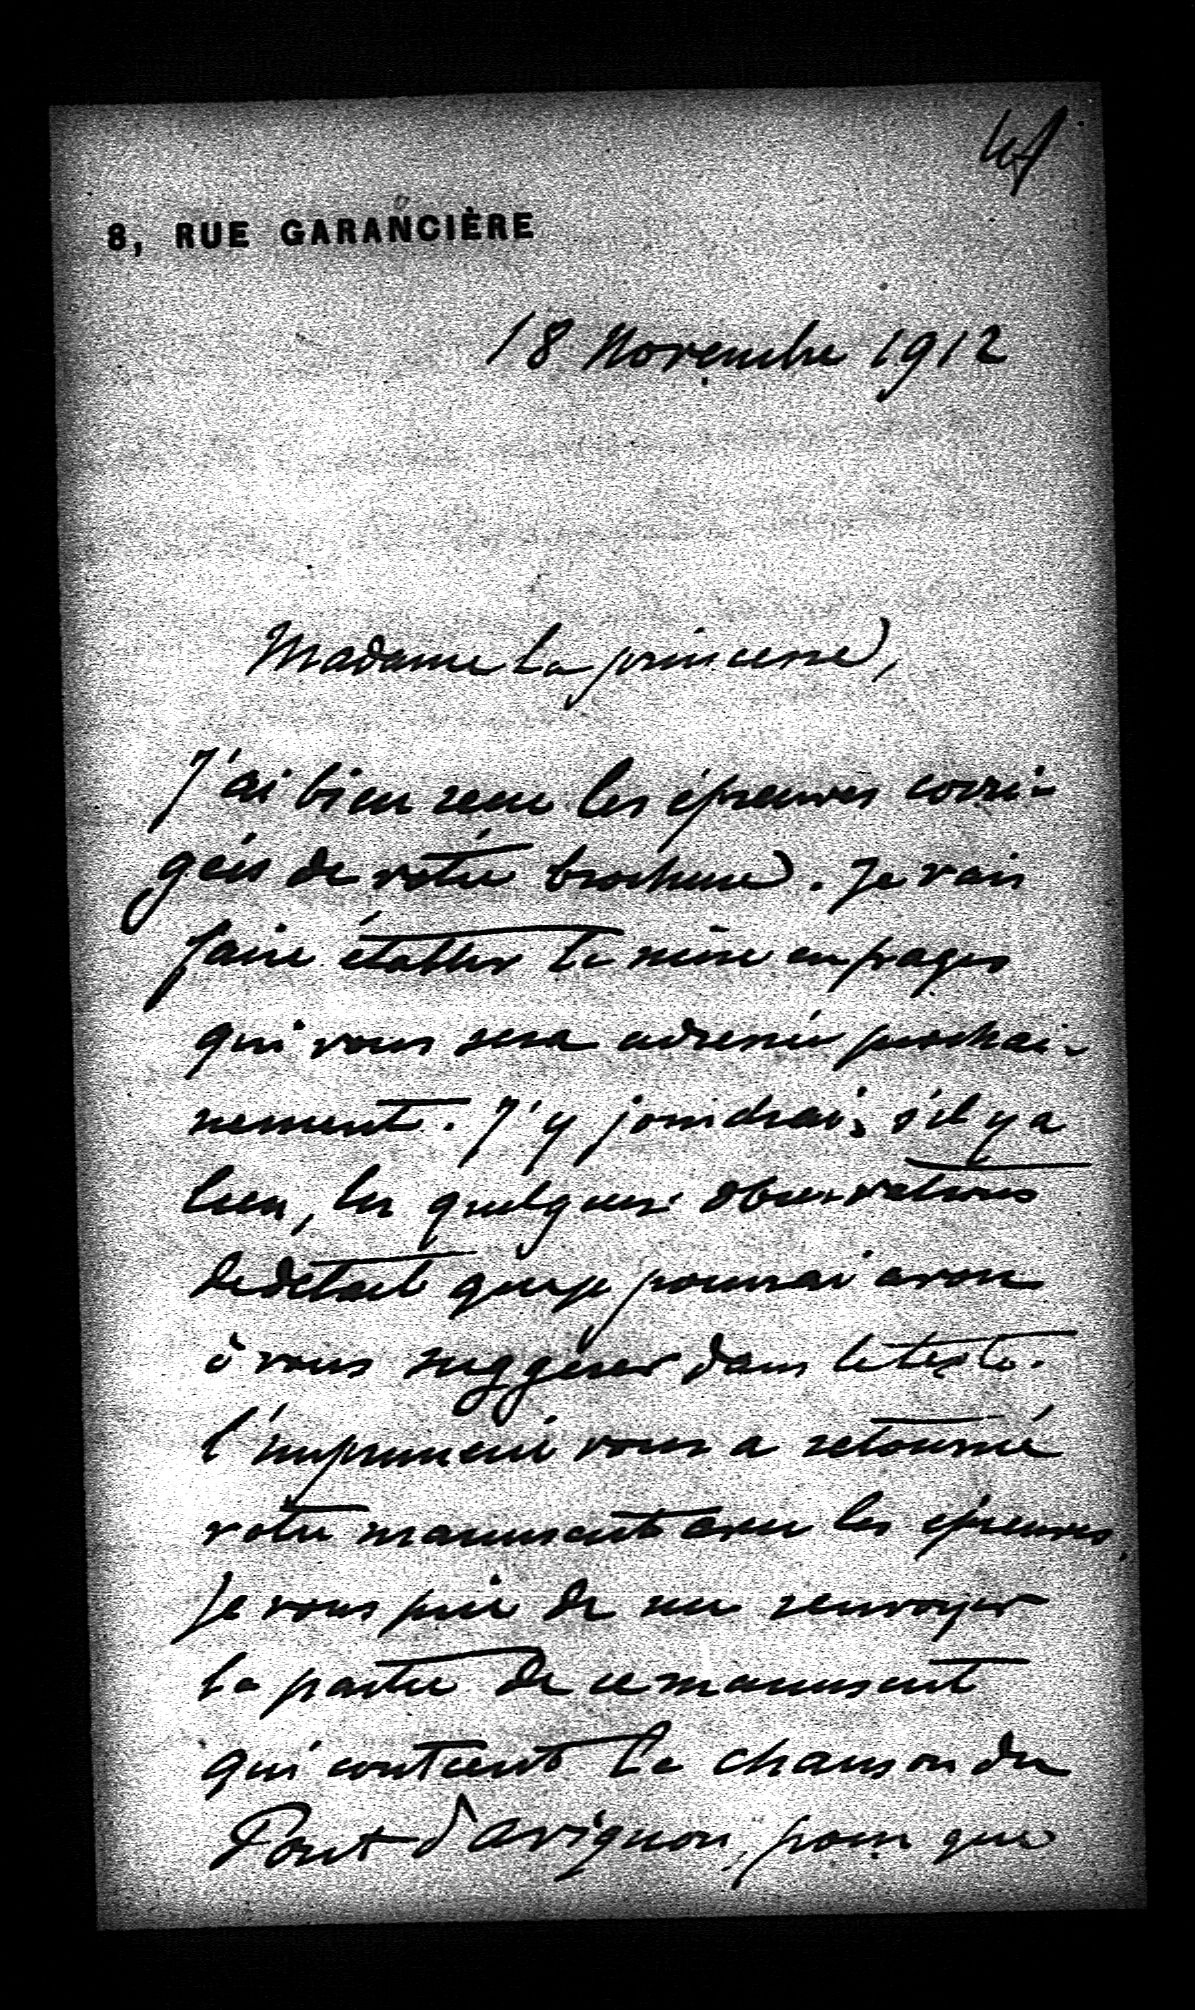 8, RUE GARANCIÈRE
18 Novembre 1912
Madame la princesse,
J'ai bien reçu les épreuves corri-
gées de votre brochure. Je vais
faire établir la mise en pages
qui vous sera adressée prochai-
nement. J'y joindrai, s'il y a
lieu, les quelques observations
de détail que je pourrai avoir
à vous suggérer dans le texte.
L'imprimerie vous a retourné
votre manuscrit avec les épreuves.
Je vous prie de me renvoyer
la partie de ce manuscrit
qui contient la chanson du
Pont d'Avignon, pour que